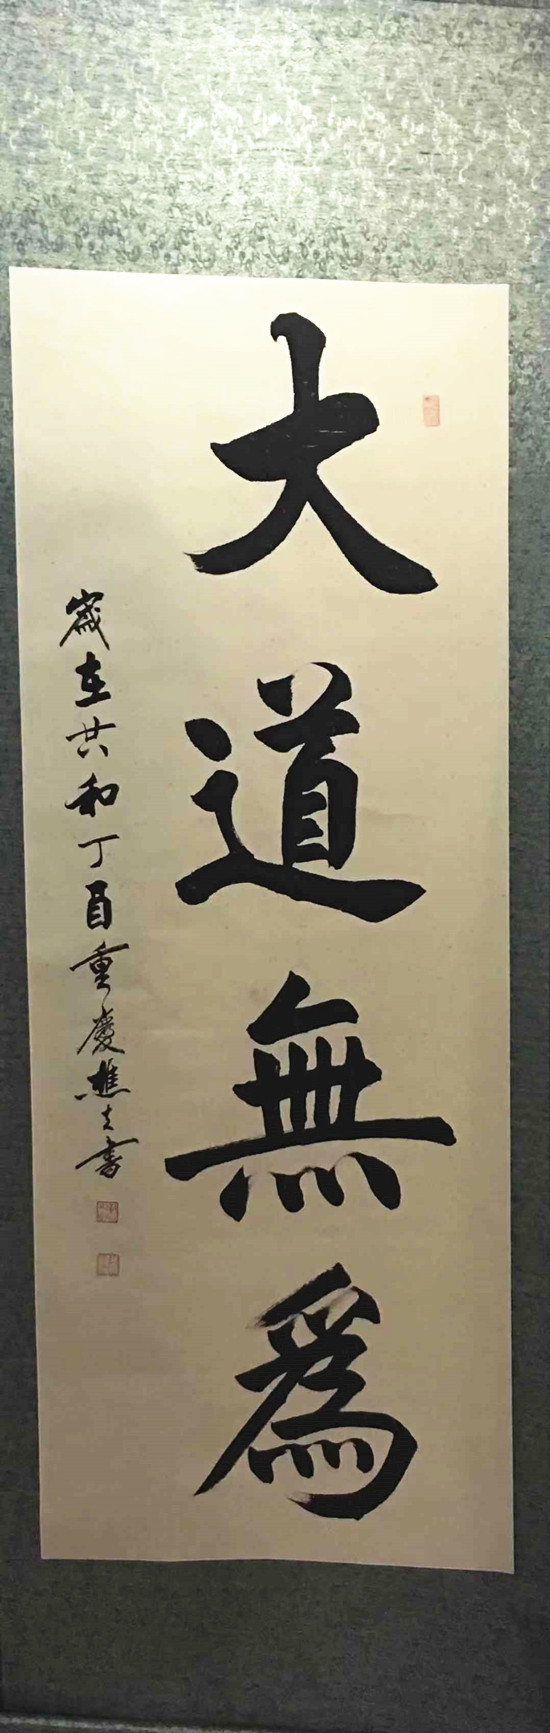 大道無為
歲在共和丁酉重慶樵書